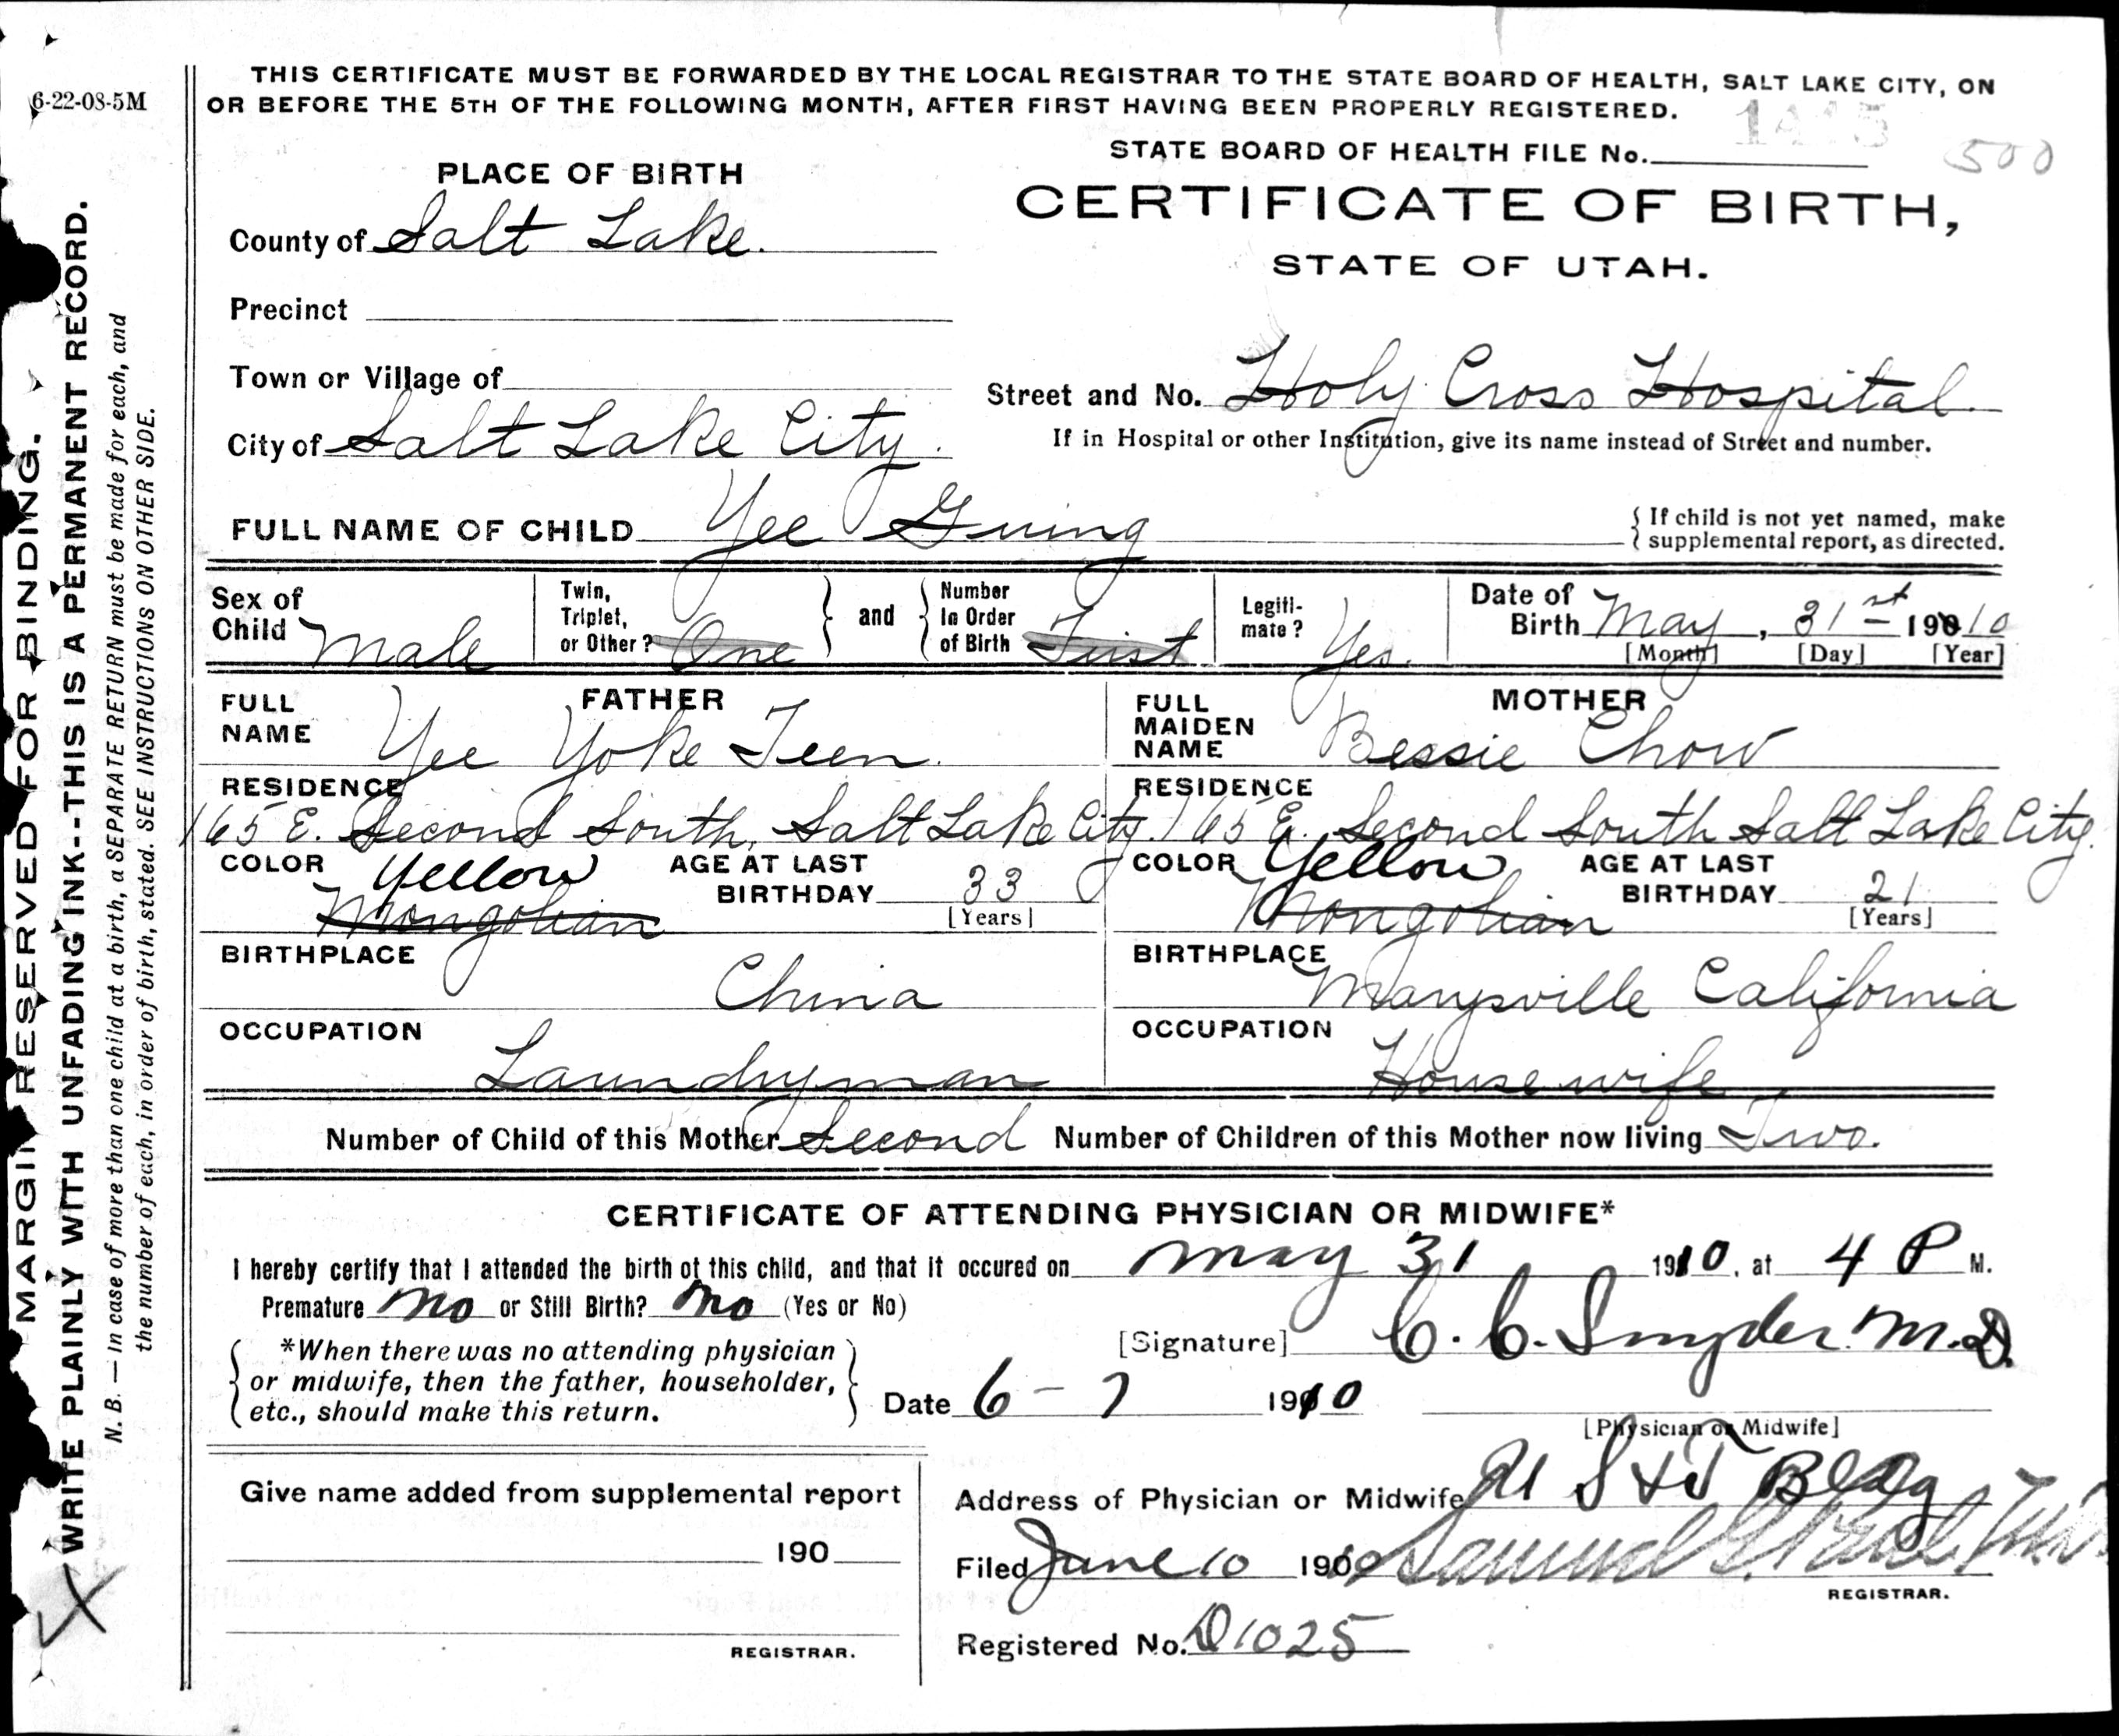 6-22-08-5M
THIS CERTIFICATE MUST BE FORWARDED BY THE LOCAL REGISTRAR TO THE STATE BOARD OF HEALTH, SALT LAKE CITY, ON
OR BEFORE THE 5TH OF THE FOLLOWING MONTH, AFTER FIRST HAVING BEEN PROPERLY REGISTERED.
STATE BOARD OF HEALTH FILE No.
500
PLACE OF BIRTH
CERTIFICATE OF BIRTH,
STATE OF UTAH.
County of Salt Lake.
Precinct
Town or Village of
Street and No. Holy Cross Hospital.
City of Salt Lake City.
If in Hospital or other Institution, give its name instead of Street and number.
FULL NAME OF CHILD Yee Guing
{ If child is not yet named, make
supplemental report, as directed.
Sex of Child Male
Twin, Triplet, or Other? One } and { Number In Order of Birth First
Legiti-mate? Yes.
Date of Birth May, 31st 1910
[Month] [Day] [Year]
FATHER
FULL NAME Yee Yoke Teen.
RESIDENCE
165 E. Second South, Salt Lake City.
COLOR Yellow
Mongolian
AGE AT LAST BIRTHDAY 33
[Years]
BIRTHPLACE
China
OCCUPATION
Laundryman
MOTHER
FULL MAIDEN NAME Bessie Chow
RESIDENCE
165 E. Second South Salt Lake City.
COLOR Yellow
Mongolian
AGE AT LAST BIRTHDAY 21
[Years]
BIRTHPLACE
Marysville California
OCCUPATION
Housewife
Number of Child of this Mother Second Number of Children of this Mother now living Two.
CERTIFICATE OF ATTENDING PHYSICIAN OR MIDWIFE*
I hereby certify that I attended the birth of this child, and that it occured on May 31 1910, at 4 P M.
Premature No or Still Birth? No (Yes or No)
*When there was no attending physician
or midwife, then the father, householder,
etc., should make this return.
[Signature] C. C. Snyder. M.D.
Date 6-7 1910
[Physician or Midwife]
Give name added from supplemental report
190
REGISTRAR.
Address of Physician or Midwife Bldg
Filed June 10 1910 Samuel G.
REGISTRAR.
Registered No. D1025
MARGIN RESERVED FOR BINDING.
WRITE PLAINLY WITH UNFADING INK--THIS IS A PERMANENT RECORD.
N. B. — In case of more than one child at a birth, a SEPARATE RETURN must be made for each, and
the number of each, in order of birth, stated. SEE INSTRUCTIONS ON OTHER SIDE.